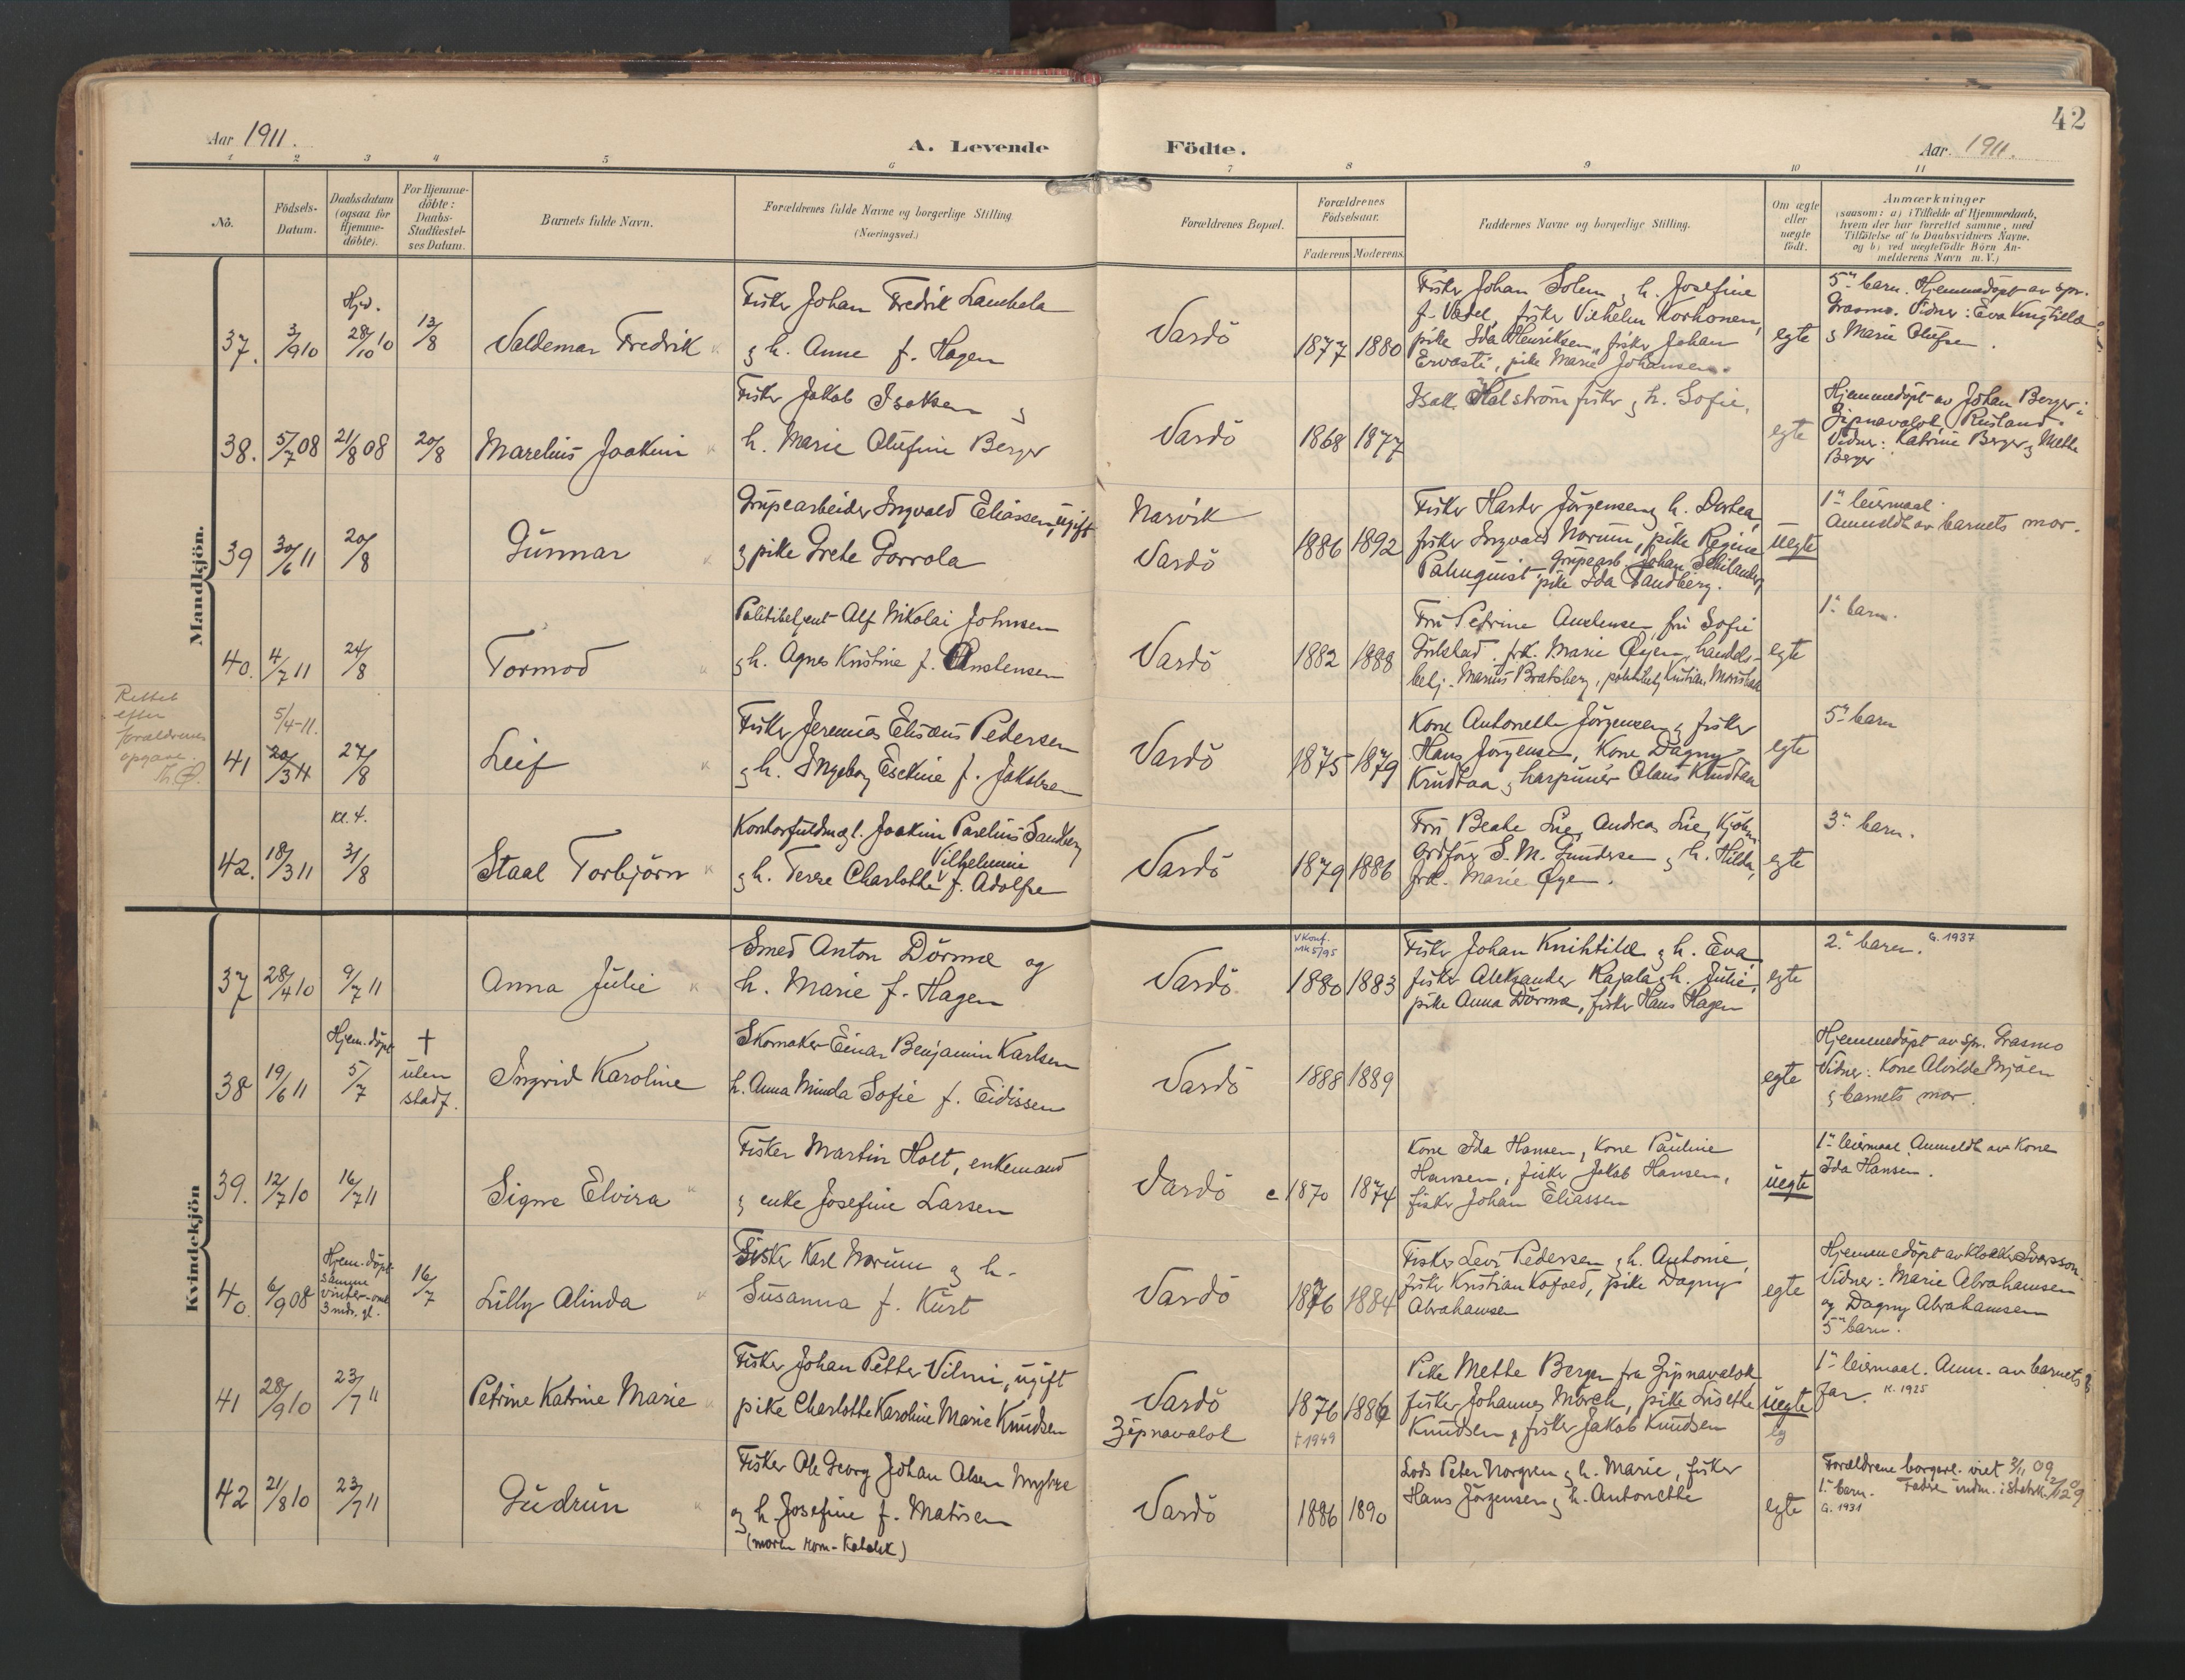 42
Aar 1911.
A. Levende Födte.
Aar 1911.
1 2 3 4 5 6 7 8 9 10 11
No.
Födsels-
Datum.
Daabsdatum
(ogsaa for
Hjemme-
döbte).
For Hjemme-
döbte:
Daabs-
Stadfæstel-
ses Datum.
Barnets fulde Navn.
Forældrenes fulde Navne og borgerlige Stilling
(Næringsvei.)
Forældrenes Bopæl.
Forældrenes
Födselsaar.
Faderens Moderens.
Faddernes Navne og borgerlige Stilling.
Om ægte
eller
uægte
födt.
Anmærkninger
(saasom: a) i Tilfælde af Hjemmedaab,
hvem der har forrettet samme, med
Tilföielse af to Daabsvidners Navne,
og b) ved uægtefödte Börn An-
melderens Navn m. V.)
Mandkjön.
37.
3/9 10
Hjd.
28/10 10
13/8
Valdemar Fredrik
Fisker Johan Fredrik Laukela
g h. Anne f. Hagen
Vardö
1877 1880
Fisker Johan Solem g h. Josefine
f. Vadel, fisker Vilhelm Korhonen,
pike Ida Henriksen, fisker Johan
Ervasti, pike Marie Johansen.
egte
5" barn. Hjemmedöpt av spr.
Grasmo. Vidner: Eva Knigtilæ
g Marie Olufsen.
38.
5/7 08
21/8 08
20/8
Marelius Joakim
Fisker Jakob Isaksen g
h. Marie Olufine Berger
Vardö
1868 1877
Isak Halström fisker g h. Sofie,
egte
Hjemmedöpt av Johan Berger i
Zipnavolok, Rusland.
Vidner: Katrine Berger g Mette
Berger
39
30/6 11
20/8
Gunnar
Grupearbeider Ingvald Eliassen, ugift
g pike Grete Gorrola
Narvik
Vardö
1886 1892
Fisker Harder Jörgensen g h. Dortea,
fisker Ingvald Norum, pike Regine
Palmquist, Grupearb. Johan Schilander,
pike Ida Sandberg.
uegte
1" leiermaal.
Anmeldt av barnets mor.
40.
4/7 11
24/8
Tormod
Politibetjent Alf Nikolai Johnsen
g h. Agnes Kristine f. Anstensen
Vardö
1882 1888
Fru Petrine Anstensen, fru Sofie
Gulstad, frk. Marie Öyen, handels-
betj. Marius Bratsberg, politibetj Kristian
egte
1" barn.
Rettet
efter
forældrenes
opgave.
41
5/4-11.
20/3 11
27/8
Leif
Fisker Jeremias Elisæus Pedersen
g h. Ingeborg Esekine f. Jakobsen
Vardö
1875 1879
Kone Antonette Jörgensen g fisker
Hans Jörgensen, Kone Dagny
Krudtaa g harpuner Olaus Krudtaa
egte
5" barn
42.
18/3 11
kl. 4.
31/8
Staal Torbjörn
Kontorfuldmægt. Joakim Parelius Sandberg
g h. Terese Charlotte Vilhelmine f. Adolfsen
Vardö
1879 1886
Fru Beate Lie, Andreas Lie, Kjöbm.
Ordförer S. M. Gundersen g h. Hilda,
frk. Marie Öyen.
egte
3" barn.
Kvindekjön
37
28/4 10
9/7 11
Anna Julie
Smed Anton Dörmæ og
h. Marie f. Hagen
Vardö
V Konf.
MK 5/95
1880 1883
Fisker Johan Knihtilæ g h. Eva,
fisker Aleksander Kajala g h. Julie,
pike Anna Dörmæ, fisker Hans Hagen
egte
2" barn. G. 1937
38
19/6 11
Hjem.döpt
5/7
†
uten
stadf.
Ingrid Karoline
Skomaker Einar Benjamin Karlsen
h. Anna Minda Sofie f. Eidissen
Vardö
1888 1889
egte
Hjemmedöpt av spr. Grasmo
Vidner: Kone Alvilde Mjöen
g barnets mor.
39.
12/7 10
16/7 11
Signe Elvira
Fisker Martin Holt, enkemand
g enke Josefine Larsen
Vardö
c 1870 1874
Kone Ida Hansen, Kone Pauline
Hansen, fisker Jakob Hansen,
fisker Johan Eliassen
uegte
1" leiermaal Anmeldt av Kone
Ida Hansen.
40.
6/9 08
Hjem.döpt
samme
vinter-omtr
3 mdr. gl.
16/7
Lilly Alinda
Fisker Karl Norum g h.
Susanna f. Kurt
Vardö
1876 1884
Fisker Levi Pedersen g h. Antonie,
fisker Kristian Kofoed, pike Dagny
Abrahamsen
egte
Hjemmedöpt av Klokker Ivarsson.
Vidner: Marie Abrahamsen
og Dagny Abrahamsen
5" barn.
41
28/9 10
23/7 11
Petrine Katrine Marie
Fisker Johan Petter Vilmi, ugift
pike Charlotte Karoline Marie Knudsen
Vardö
Zipnavolok
1876 1886
† 1949
Pike Mette Berger fra Zipnavolok
fisker Johannes Mörch, pike Lisethe
Knudsen, fisker Jakob Knudsen
uegte
1" leiermaal. Anm. av barnets
far. K. 1925
42
21/8 10
23/7 11
Gudrun
Fisker Ole Georg Johan Olsen Myhre
og h. Josefine f. Matisen
(moren rom-katolsk)
Vardö
1886 1890
Lods Peter Norgren g h. Marie, fisker
Hans Jörgensen g h. Antonette
egte
Forældrene borgerl. viet 2/11 09
1" barn. Fadren indm. i Statsk. 12/12 09
G. 1931